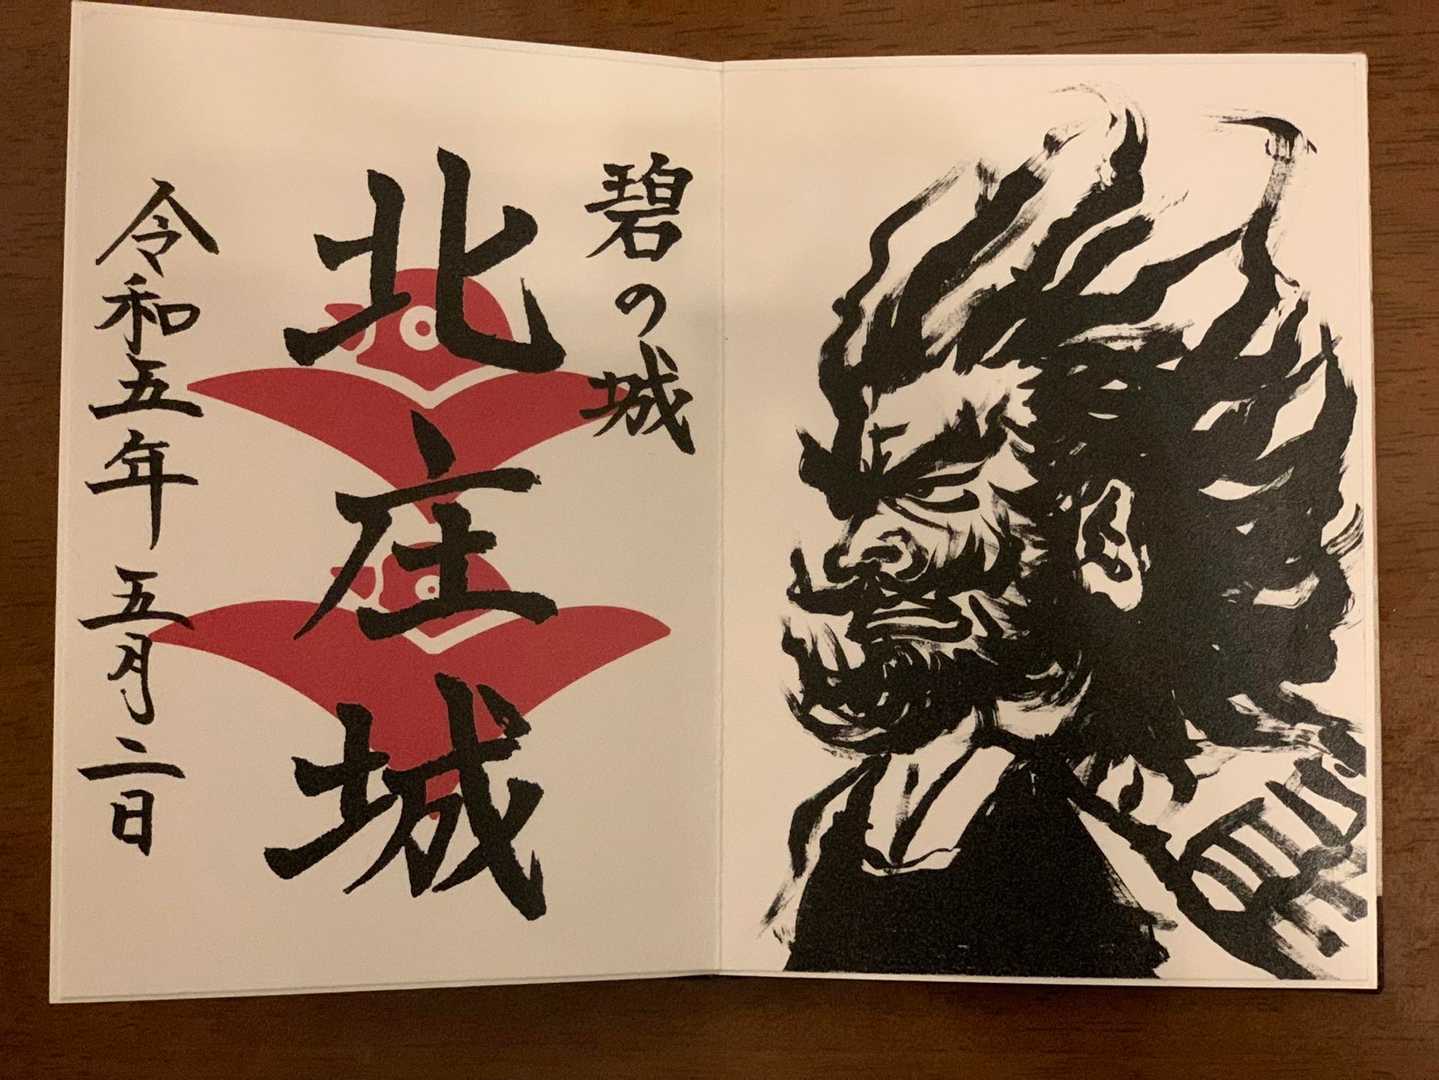 碧の城
北庄城
令和五年五月二日